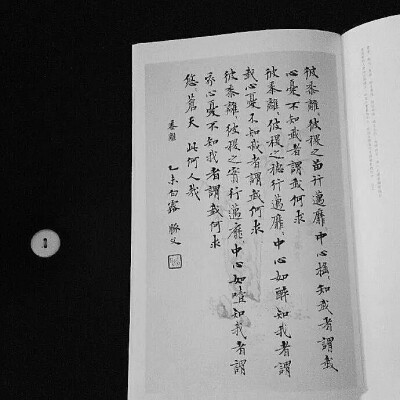 彼黍離彼稷之苗行邁靡中心搖知我者謂我
心憂不知我者謂我何求
彼黍離彼稷之穗行邁靡中心如醉知我者謂
我心憂不知我者謂我何求
彼黍離彼稷之實行邁靡中心如噎知我者謂
我心憂不知我者謂我何求
悠蒼天此何人哉
黍離 乙未白露